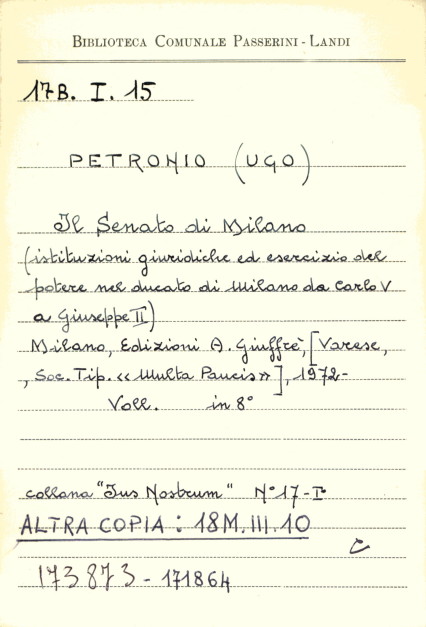 BIBLIOTECA COMUNALE PASSERINI - LANDI
17B. I. 15
PETRONIO (UGO)
Il Senato di Milano
(istituzioni giuridiche ed esercizio del
potere nel ducato di Milano da Carlo V
a Giuseppe II)
Milano, Edizioni A. Giuffrè, [Varese,
, Soc. Tip. << Multa Paucis >>], 1972-
Voll. in 8°
collana "Jus Nostrum" N° 17-I°
ALTRA COPIA : 18M. III. 10
C
173873 - 171864